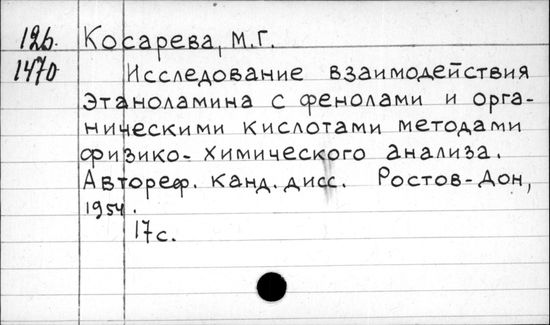 126. Косарева, М.Г.
1470 Исследование взаимодействия
Этаноламина с фенолами и орга-
ническими кислотами методами
физико-химического анализа.
Автореф. канд. дисс. Ростов-Дон,
1954.
17 с.